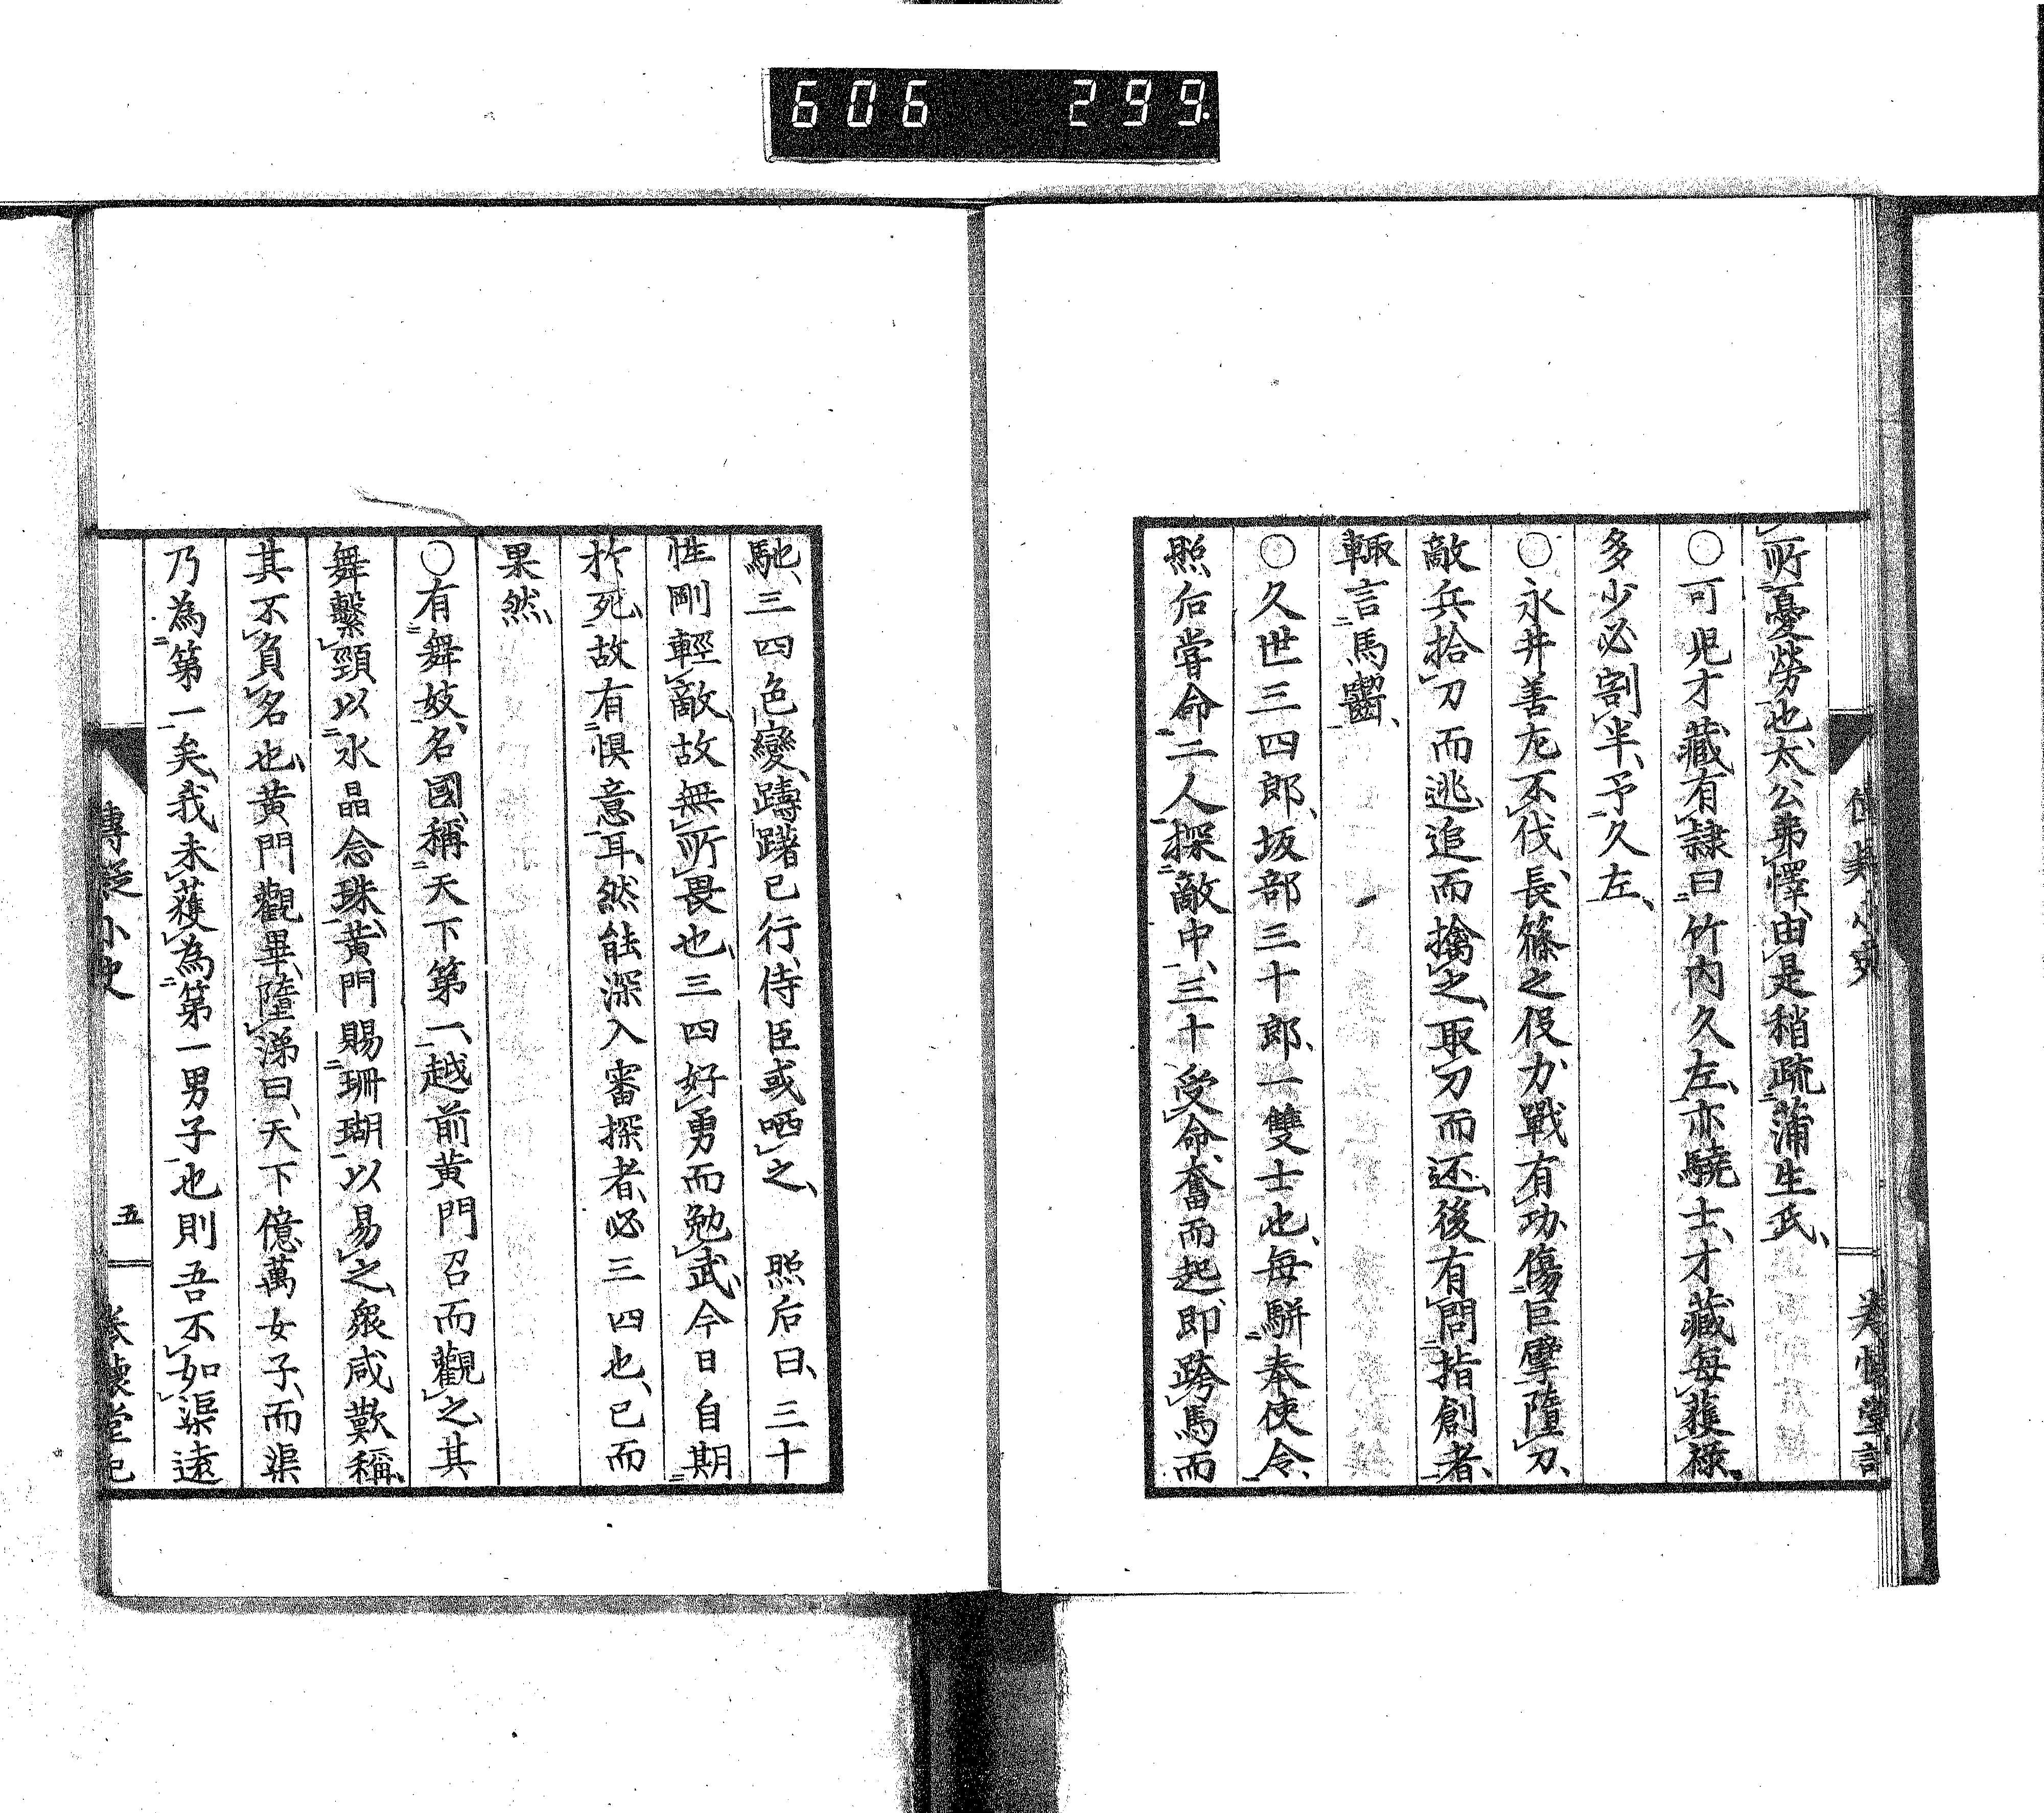 606 299
所憂勞也、太公弗懌、由是稍疏蒲生氏、
○可児才藏有隷曰竹内久左、亦驍士、才藏每獲禄、
多少必割半、予久左、
○永井善左不伐、長篠之役力戰有功、傷巨擘墮刀、
敵兵拾刀而逃、追而擒之、取刀而还、後有問指創者、
輙言馬齧、
○久世三四郎、坂部三十郎、一雙士也、每駢奉使令、
照后嘗命二人探敵中、三十受命、奮而起、即跨馬而
馳、三四色變、躊躇已行、侍臣或哂之、 照后曰、三十
性剛輕敵、故無所畏也、三四好勇而勉武、今日自期
於死、故有惧意耳、然能深入審探者、必三四也、已而
果然、
○有舞妓、名國、稱天下第一、越前黄門召而觀之、其
舞繫頸以水晶念珠、黄門賜珊瑚以易之、衆咸歎稱、
其不負名也、黄門觀畢、墮涕曰、天下億萬女子、而渠
乃為第一矣、我未獲為第一男子也、則吾不如渠遠
五